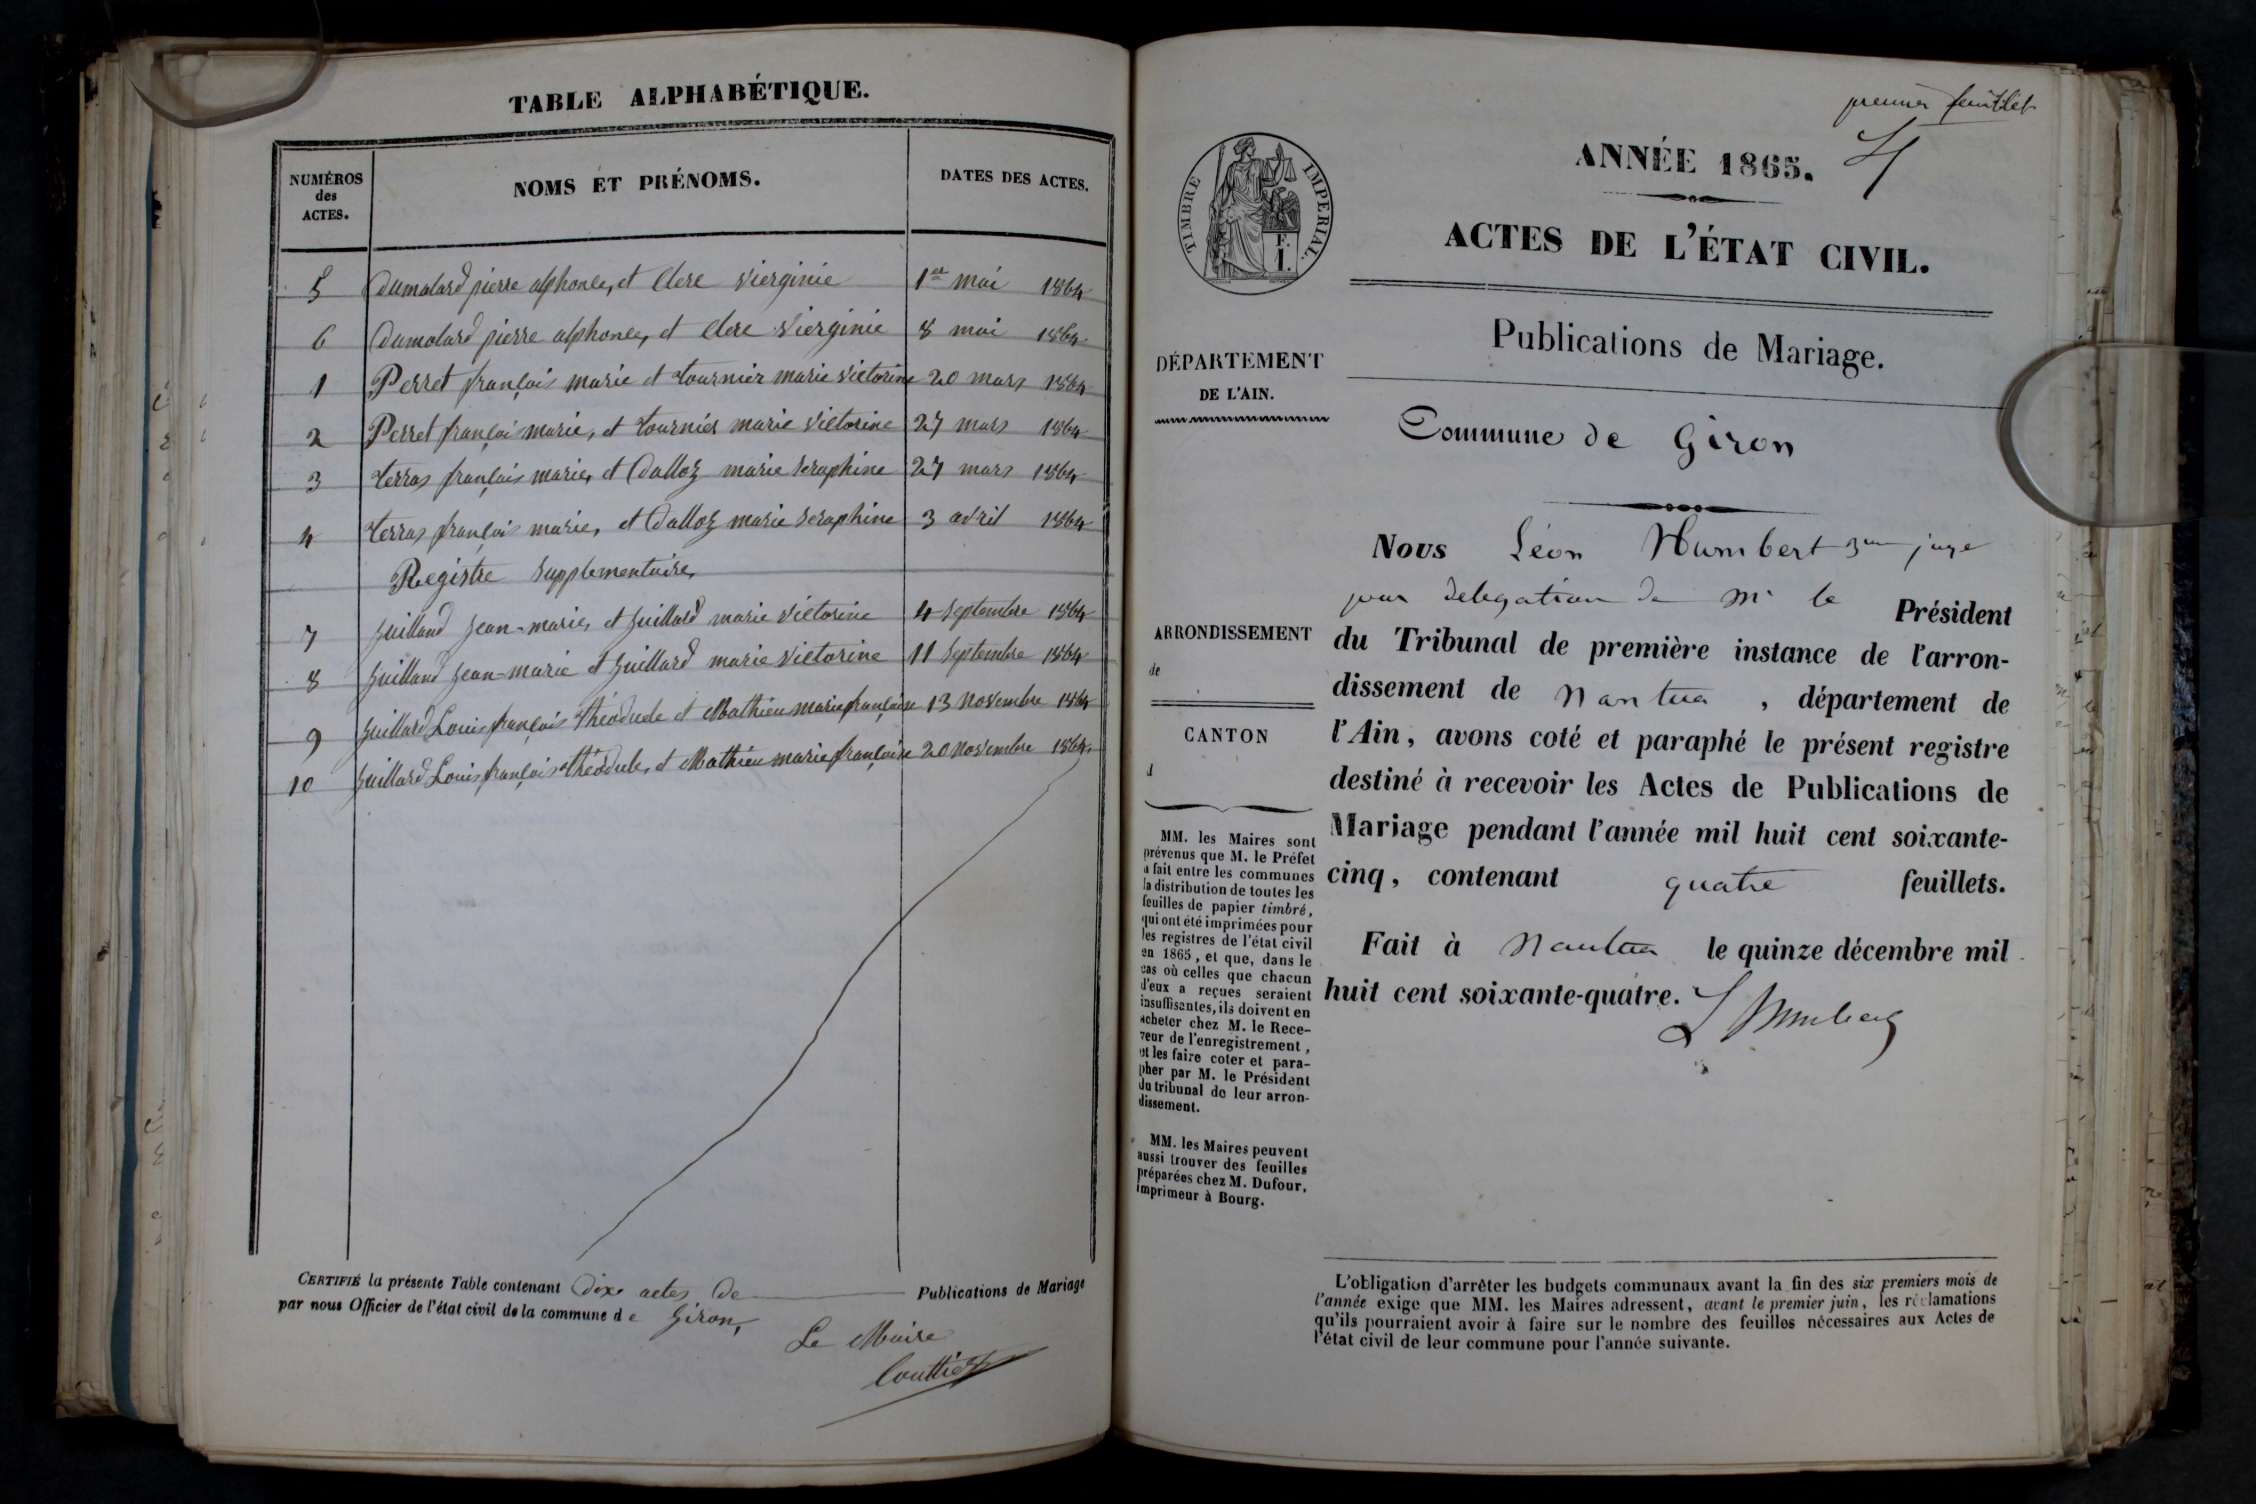 TABLE ALPHABÉTIQUE.
NUMÉROS des ACTES. NOMS ET PRÉNOMS. DATES DES ACTES.
5 Dumolard pierre alphonse, et Clere Vierginie 1er mai 1864
6 Dumolard pierre alphonse, et Clere Vierginie 8 mai 1864
1 Perret françois marie et tournier marie Victorine 20 mars 1864
2 Perret françois marie, et tournier marie Victorine 27 mars 1864
3 terras françois marie, et Dalloz marie Seraphine 27 mars 1864
4 terras françois marie, et Dalloz marie Seraphine 3 avril 1864
Registre Supplementaire
7 Guilland Jean-marie, et Guillard marie Victorine 4 Septembre 1864
8 Guilland Jean-marie et Guillard marie Victorine 11 Septembre 1864
9 Guillard Louis françois théodule et Mathieu marie françoise 13 Novembre 1864
10 Guillard Louis françois théodule, et Mathieu marie françoise 20 Novembre 1864
CERTIFIÉ la présente Table contenant Dix actes De Publications de Mariage
par nous Officier de l'état civil de la commune de Giron,
Le Maire
premier feuillet
ANNÉE 1865.
TIMBRE IMPERIAL.
E.
I.
ACTES DE L'ÉTAT CIVIL.
Publications de Mariage.
DÉPARTEMENT
DE L'AIN.
Commune de Giron
Nous Léon Humbert juge
par delegation de Mr le Président
ARRONDISSEMENT
de
CANTON
d
du Tribunal de première instance de l'arron-
dissement de Nantua, département de
l'Ain, avons coté et paraphé le présent registre
destiné à recevoir les Actes de Publications de
Mariage pendant l'année mil huit cent soixante-
cinq, contenant quatre feuillets.
Fait à Nantua le quinze décembre mil
huit cent soixante-quatre.
L Humbert
MM. les Maires sont
prévenus que M. le Préfet
a fait entre les communes
la distribution de toutes les
feuilles de papier timbré,
qui ont été imprimées pour
les registres de l'état civil
en 1865, et que, dans le
cas où celles que chacun
d'eux a reçues seraient
insuffisantes, ils doivent en
acheter chez M. le Rece-
veur de l'enregistrement,
et les faire coter et para-
pher par M. le Président
du tribunal de leur arron-
dissement.
MM. les Maires peuvent
aussi trouver des feuilles
préparées chez M. Dufour,
imprimeur à Bourg.
L'obligation d'arrêter les budgets communaux avant la fin des six premiers mois de
l'année exige que MM. les Maires adressent, avant le premier juin, les réclamations
qu'ils pourraient avoir à faire sur le nombre des feuilles nécessaires aux Actes de
l'état civil de leur commune pour l'année suivante.